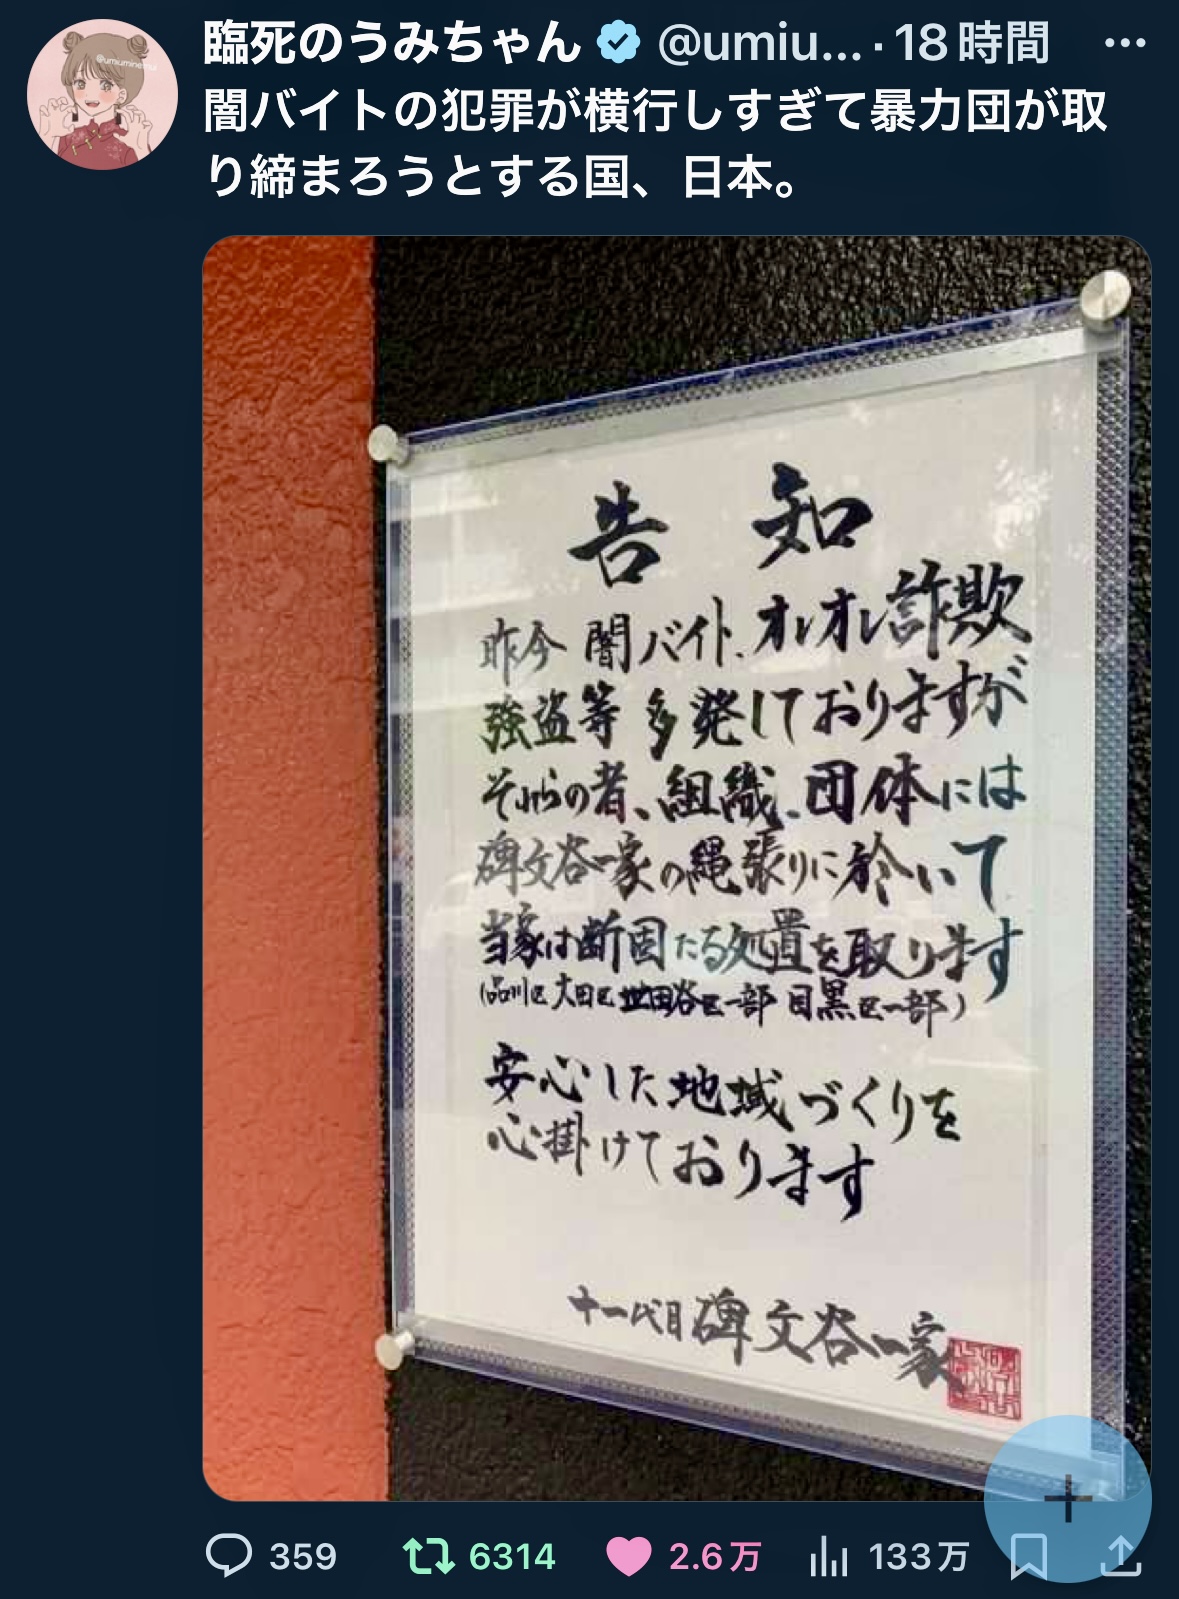 臨死のうみちゃん @umiu... · 18時間
闇バイトの犯罪が横行しすぎて暴力団が取
り締まろうとする国、日本。
告知
昨今 闇バイト、オレオレ詐欺
強盗等 多発しておりますが
それらの者、組織、団体には
碑文谷一家の縄張りに於いて
当家は断固たる処置を取ります
(品川区 大田区 世田谷区一部 目黒区一部)
安心した地域づくりを
心掛けております
十一代目 碑文谷一家
359 6314 2.6万 133万